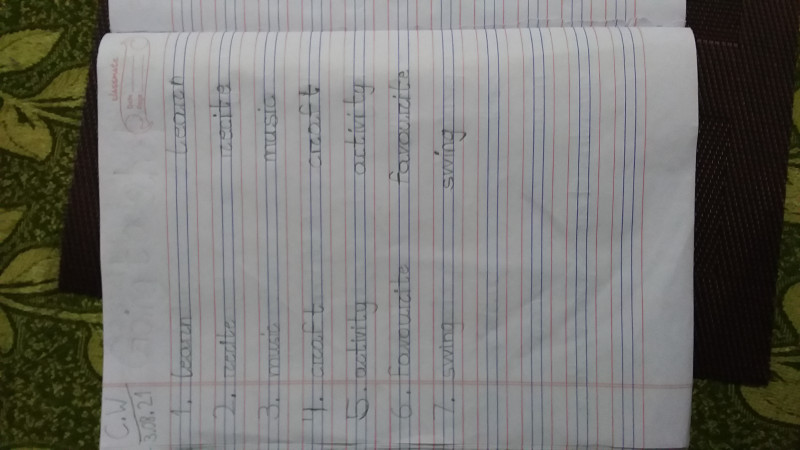 classmate
C.W
3.08.21
1. learn learn
2.
3. music music
4. craft craft
5. activity activity
6. favourite favourite
7. swing swing